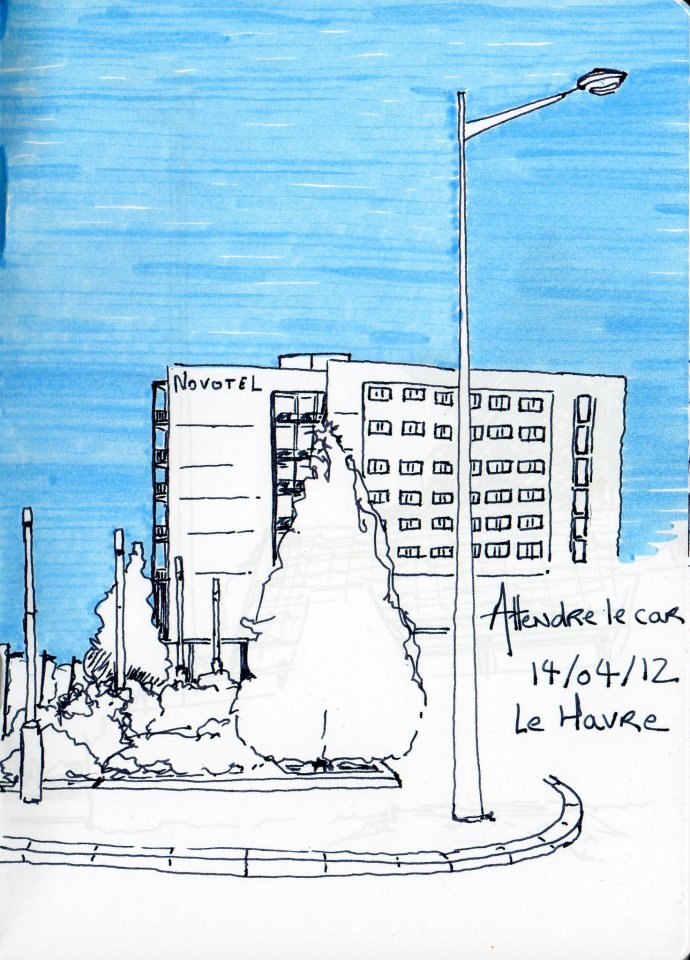 NOVOTEL
Attendre le car
14/04/12
Le Havre